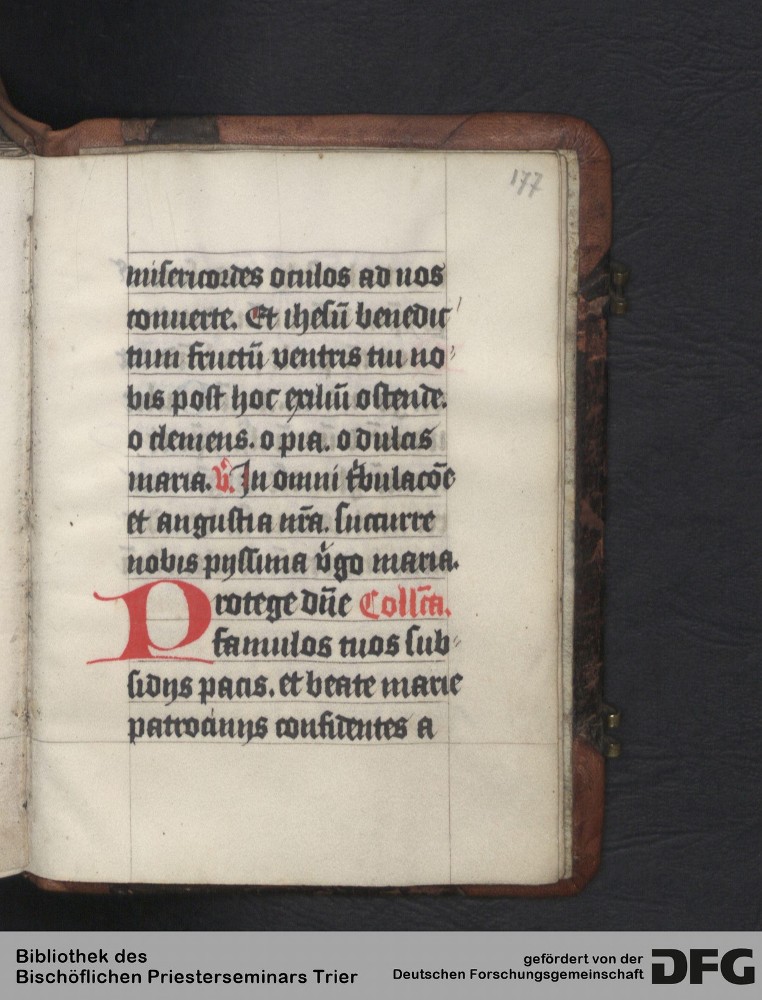 177
misericordes oculos ad nos
conuerte. Et ihesū benedic
tum fructū ventris tui no
bis post hoc exiliū ostende.
o clemens. o pia. o dulcis
maria. v̄. In omni t̄bulacōe
et angustia nr̄a. succurre
nobis pyssima v̄go maria.
Protege dn̄e Coll̄ca.
famulos tuos sub
sidijs pacis. et beate marie
patrocinijs confidentes a
Bibliothek des
Bischöflichen Priesterseminars Trier
gefördert von der
Deutschen Forschungsgemeinschaft
DFG